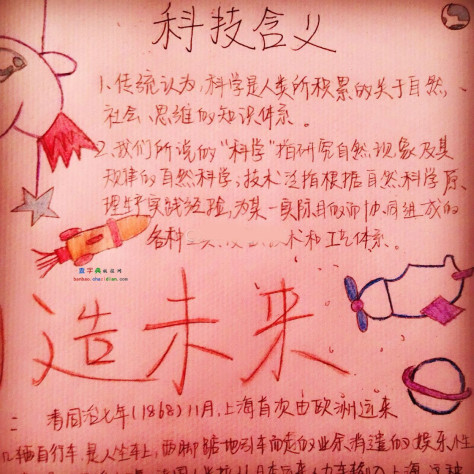 科技含义
1、传统认为,科学是人类所积累的关于自然,
社会、思维的知识体系。
2、我们所说的“科学”指研究自然现象及其
规律的自然科学;技术泛指根据自然科学原
理生产实践经验,为某一实际目的而协同组成的
各种 术和工艺体系。
查字典
造未来
清同治七年(1868)11月,上海首次由欧洲运来
几辆自行车,是人坐车上,两脚踮地引车而走的业余消遣的娱乐性